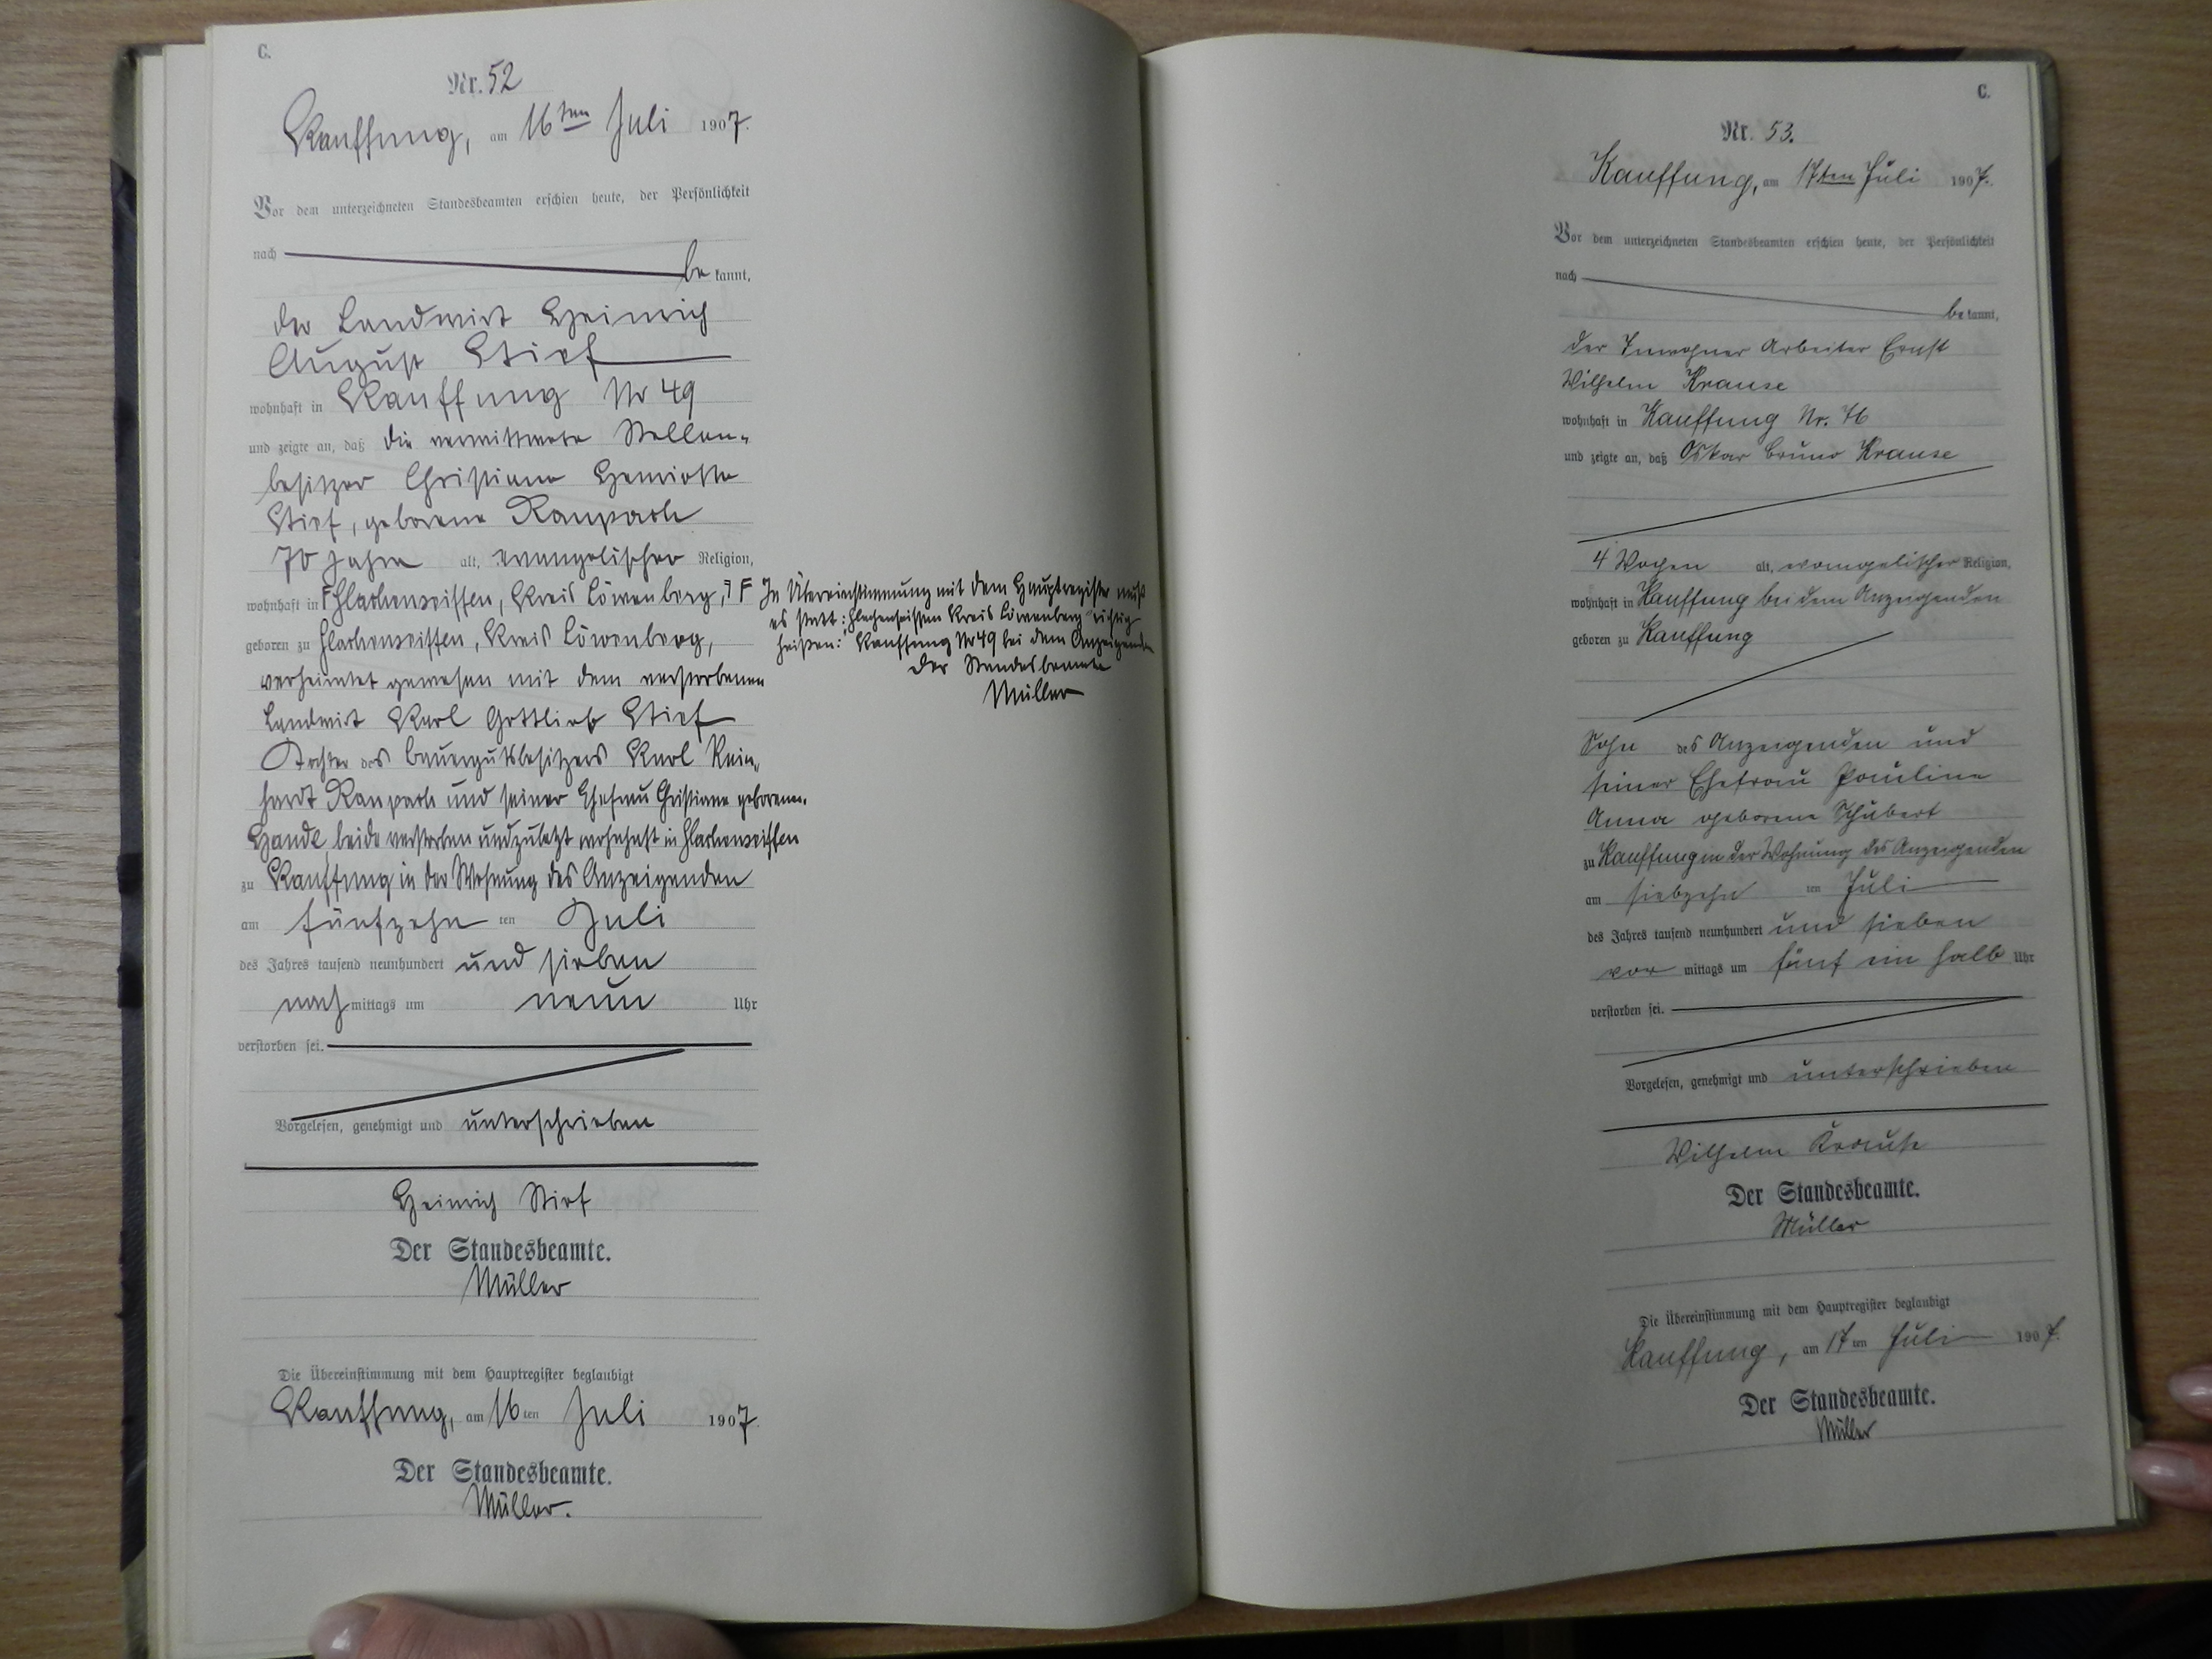 C.
Nr. 52
Kauffung, am 16ten Juli 1907.
Vor dem unterzeichneten Standesbeamten erschien heute, der Persönlichkeit
nach be kannt,
der Landwirt Heinrich
August Stief
wohnhaft in Kauffung Nr 49
und zeigte an, daß die verwittwete Stellen-
besitzer Christiane Henriette
Stief, geborene Raupach
70 Jahre alt, evangelischer Religion,
wohnhaft in Flachenseiffen, Kreis Löwenberg,
geboren zu Flachenseiffen, Kreis Löwenberg,
verheiratet gewesen mit dem verstorbenen
Landwirt Karl Gottlieb Stief
Tochter des Bauergutsbesitzers Karl Rein-
hardt Raupach und seiner Ehefrau Christiane geborenen
Hande, beide verstorben und zuletzt wohnhaft in Flachenseiffen
zu Kauffung in der Wohnung des Anzeigenden
am fünfzehn ten Juli
des Jahres tausend neunhundert und sieben
nach mittags um neun Uhr
verstorben sei.
Vorgelesen, genehmigt und unterschrieben
Heinrich Stief
Der Standesbeamte.
Müller
Die Übereinstimmung mit dem Hauptregister beglaubigt
Kauffung, am 16 ten Juli 1907.
Der Standesbeamte.
Müller.
F In Übereinstimmung mit dem Hauptregister muß
es statt: Flachenseiffen Kreis Löwenberg" richtig
heißen: Kauffung Nr 49 bei dem Anzeigenden
Der Standesbeamte
Müller
C.
Nr. 53.
Kauffung, am 17ten Juli 1907.
Vor dem unterzeichneten Standesbeamten erschien heute, der Persönlichkeit
nach be kannt,
der Inwohner Arbeiter Ernst
Wilhelm Krause
wohnhaft in Kauffung Nr. 76
und zeigte an, daß Oskar Bruno Krause
4 Wochen alt, evangelischer Religion,
wohnhaft in Kauffung bei dem Anzeigenden
geboren zu Kauffung
Sohn des Anzeigenden und
seiner Ehefrau Pauline
Anna geborene Schubert
zu Kauffung in der Wohnung des Anzeigenden
am siebzehn ten Juli
des Jahres tausend neunhundert und sieben
vor mittags um fünf ein halb Uhr
verstorben sei.
Vorgelesen, genehmigt und unterschrieben
Wilhelm Krause
Der Standesbeamte.
Müller
Die Übereinstimmung mit dem Hauptregister beglaubigt
Kauffung, am 17 ten Juli 1907.
Der Standesbeamte.
Müller